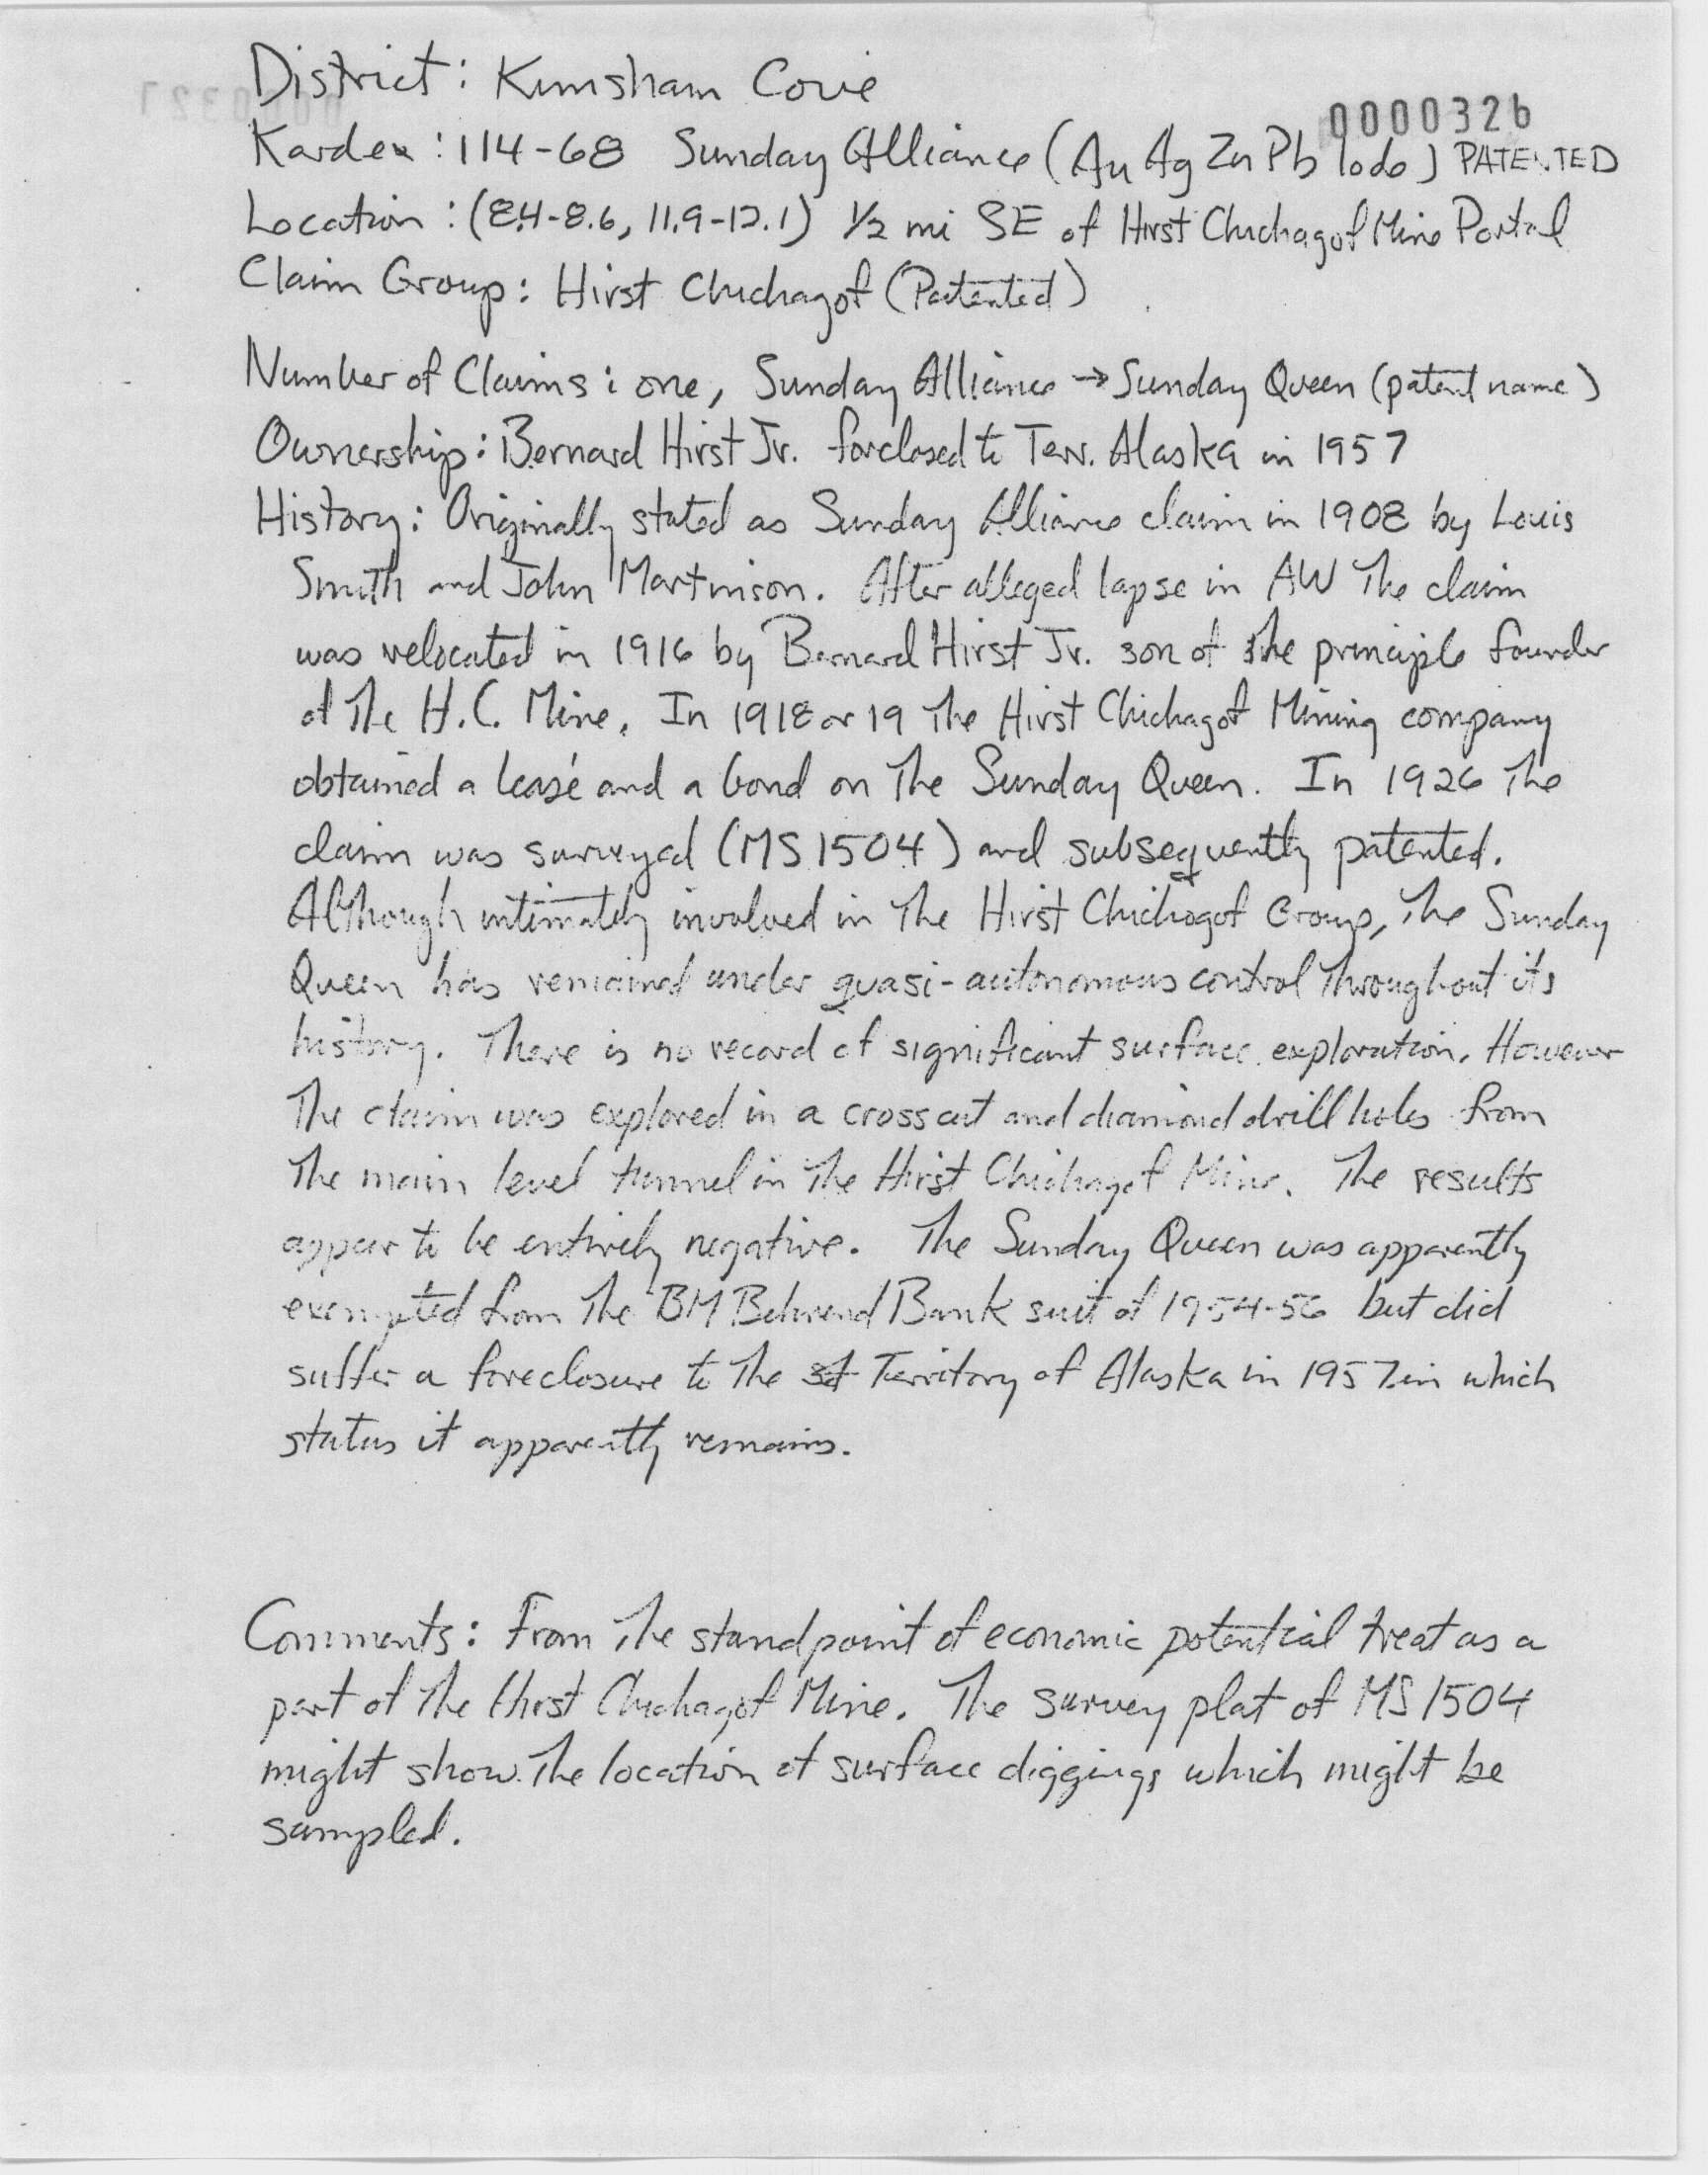 District: Kimsham Cove
0000326
Kardex: 114-68 Sunday Alliance (Au Ag Zn Pb lode) PATENTED
Location: (8.4-8.6, 11.9-12.1) 1/2 mi SE of Hirst Chichagof Mine Portal
Claim Group: Hirst Chichagof (Patented)
Number of Claims: one, Sunday Alliance → Sunday Queen (patent name)
Ownership: Bernard Hirst Jr. forclosed to Terr. Alaska in 1957
History: Originally stated as Sunday Alliance claim in 1908 by Louis
Smith and John Martinson. After alleged lapse in AW the claim
was relocated in 1916 by Bernard Hirst Jr. son of the principle founder
of the H.C. Mine. In 1918 or 19 the Hirst Chichagof Mining company
obtained a lease and a bond on the Sunday Queen. In 1926 the
claim was surveyed (MS 1504) and subsequently patented.
Although intimately involved in the Hirst Chichagof Group, the Sunday
Queen has remained under quasi-autonomous control throughout its
history. There is no record of significant surface exploration. However
the claim was explored in a crosscut and diamond drill holes from
the main level tunnel in the Hirst Chichagof Mine. The results
appear to be entirely negative. The Sunday Queen was apparently
exempted from the BM Behrend Bank suit of 1954-56 but did
suffer a foreclosure to the st Territory of Alaska in 1957 in which
status it apparently remains.
Comments: From the standpoint of economic potential treat as a
part of the Hirst Chichagof Mine. The survey plat of MS 1504
might show the location of surface diggings which might be
sampled.